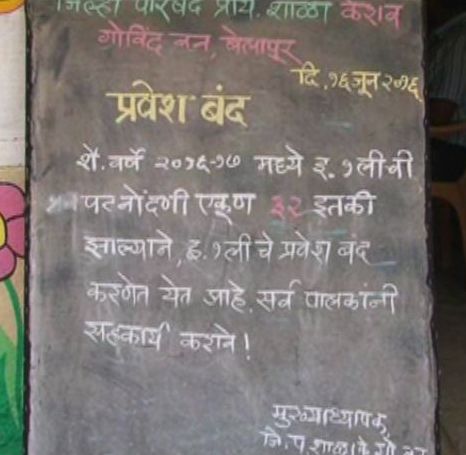 जिल्हा परिषद प्राथ. शाळा केशव
गोविंद वन, बेलापूर
दि. १६ जून २०१६
प्रवेश बंद
शै. वर्षे २०१६-१७ मध्ये इ. १ली ची
पटनोंदणी एकूण ३२ इतकी
झाल्याने, इ. १ली चे प्रवेश बंद
करणेत येत आहे. सर्व पालकांनी
सहकार्य करावे!
मुख्याध्यापक,
जि. प. शाळा के. गो. वन